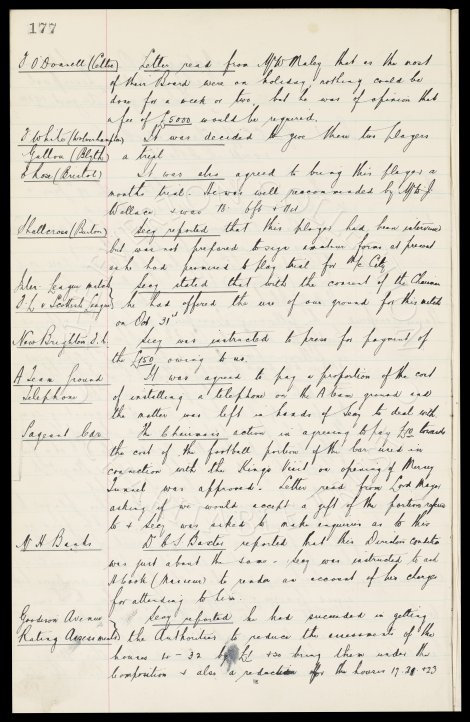 177
F O'Donnell (Celtic) Letter read from Mr W Maley that as the most
of their Board were on holiday, nothing could be
done for a week or two, but he was of opinion that
a fee of £5000 would be required.
J White (Wolverhampton) It was decided to give these two players
Galton (Blyth) a trial
(Bristol) It was also agreed to bring this player a
months trial. He was well recommended by Mr J
Wallace, & was 18. 6ft & 11st
Shallcross (Buxton) Secy reported that this player had been interviewed
but was not prepared to sign amateur forms at present
as he had promised to play trial for M/c City
Inter League match Secy stated that with the consent of the Chairman
F.L. v Scottish League he had offered the use of our ground for this match
on Oct 31st
New Brighton F.C. Secy was instructed to press for payment of
the £150 owing to us.
A Team Ground It was agreed to pay a proportion of the cost
Telephone of installing a telephone on the A team ground and
the matter was left in hands of Secy to deal with.
Pageant Car The Chairmans action in agreeing to pay £50 towards
the cost of the football portion of the car used in
connection with the Kings Visit on opening of Mersey
Tunnel was approved. Letter read from Lord Mayor
asking if we would accept a gift of the portion referred
to & Secy was asked to make enquiries as to this
Mr H Banks Dr C S Baxter reported that this Directors condition
was just about the same. Secy was instructed to ask
H Cook (Masseur) to render an account of his charges
for attending to him.
Goodison Avenue Secy reported he had succeeded in getting
Rating Assessments the Authorities to reduce the assessments of the
houses 10 - 32 by £1 & so bring them under the
Composition & also a reduction off the houses 17. 21 & 23